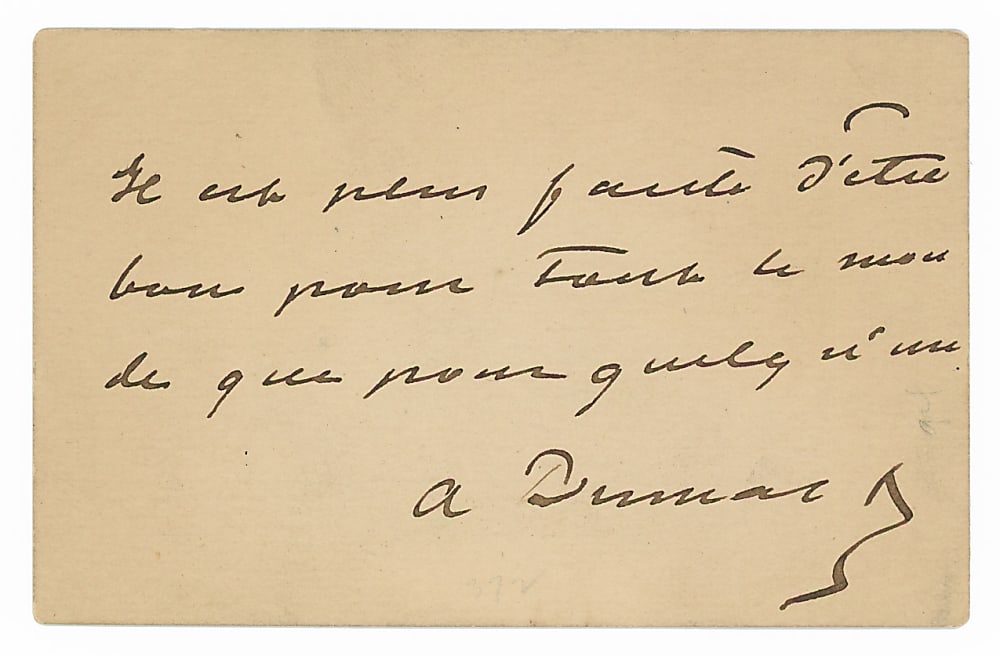 Il est plus facile d'être
bon pour tout le mon
de que pour quelqu'un
A Dumas